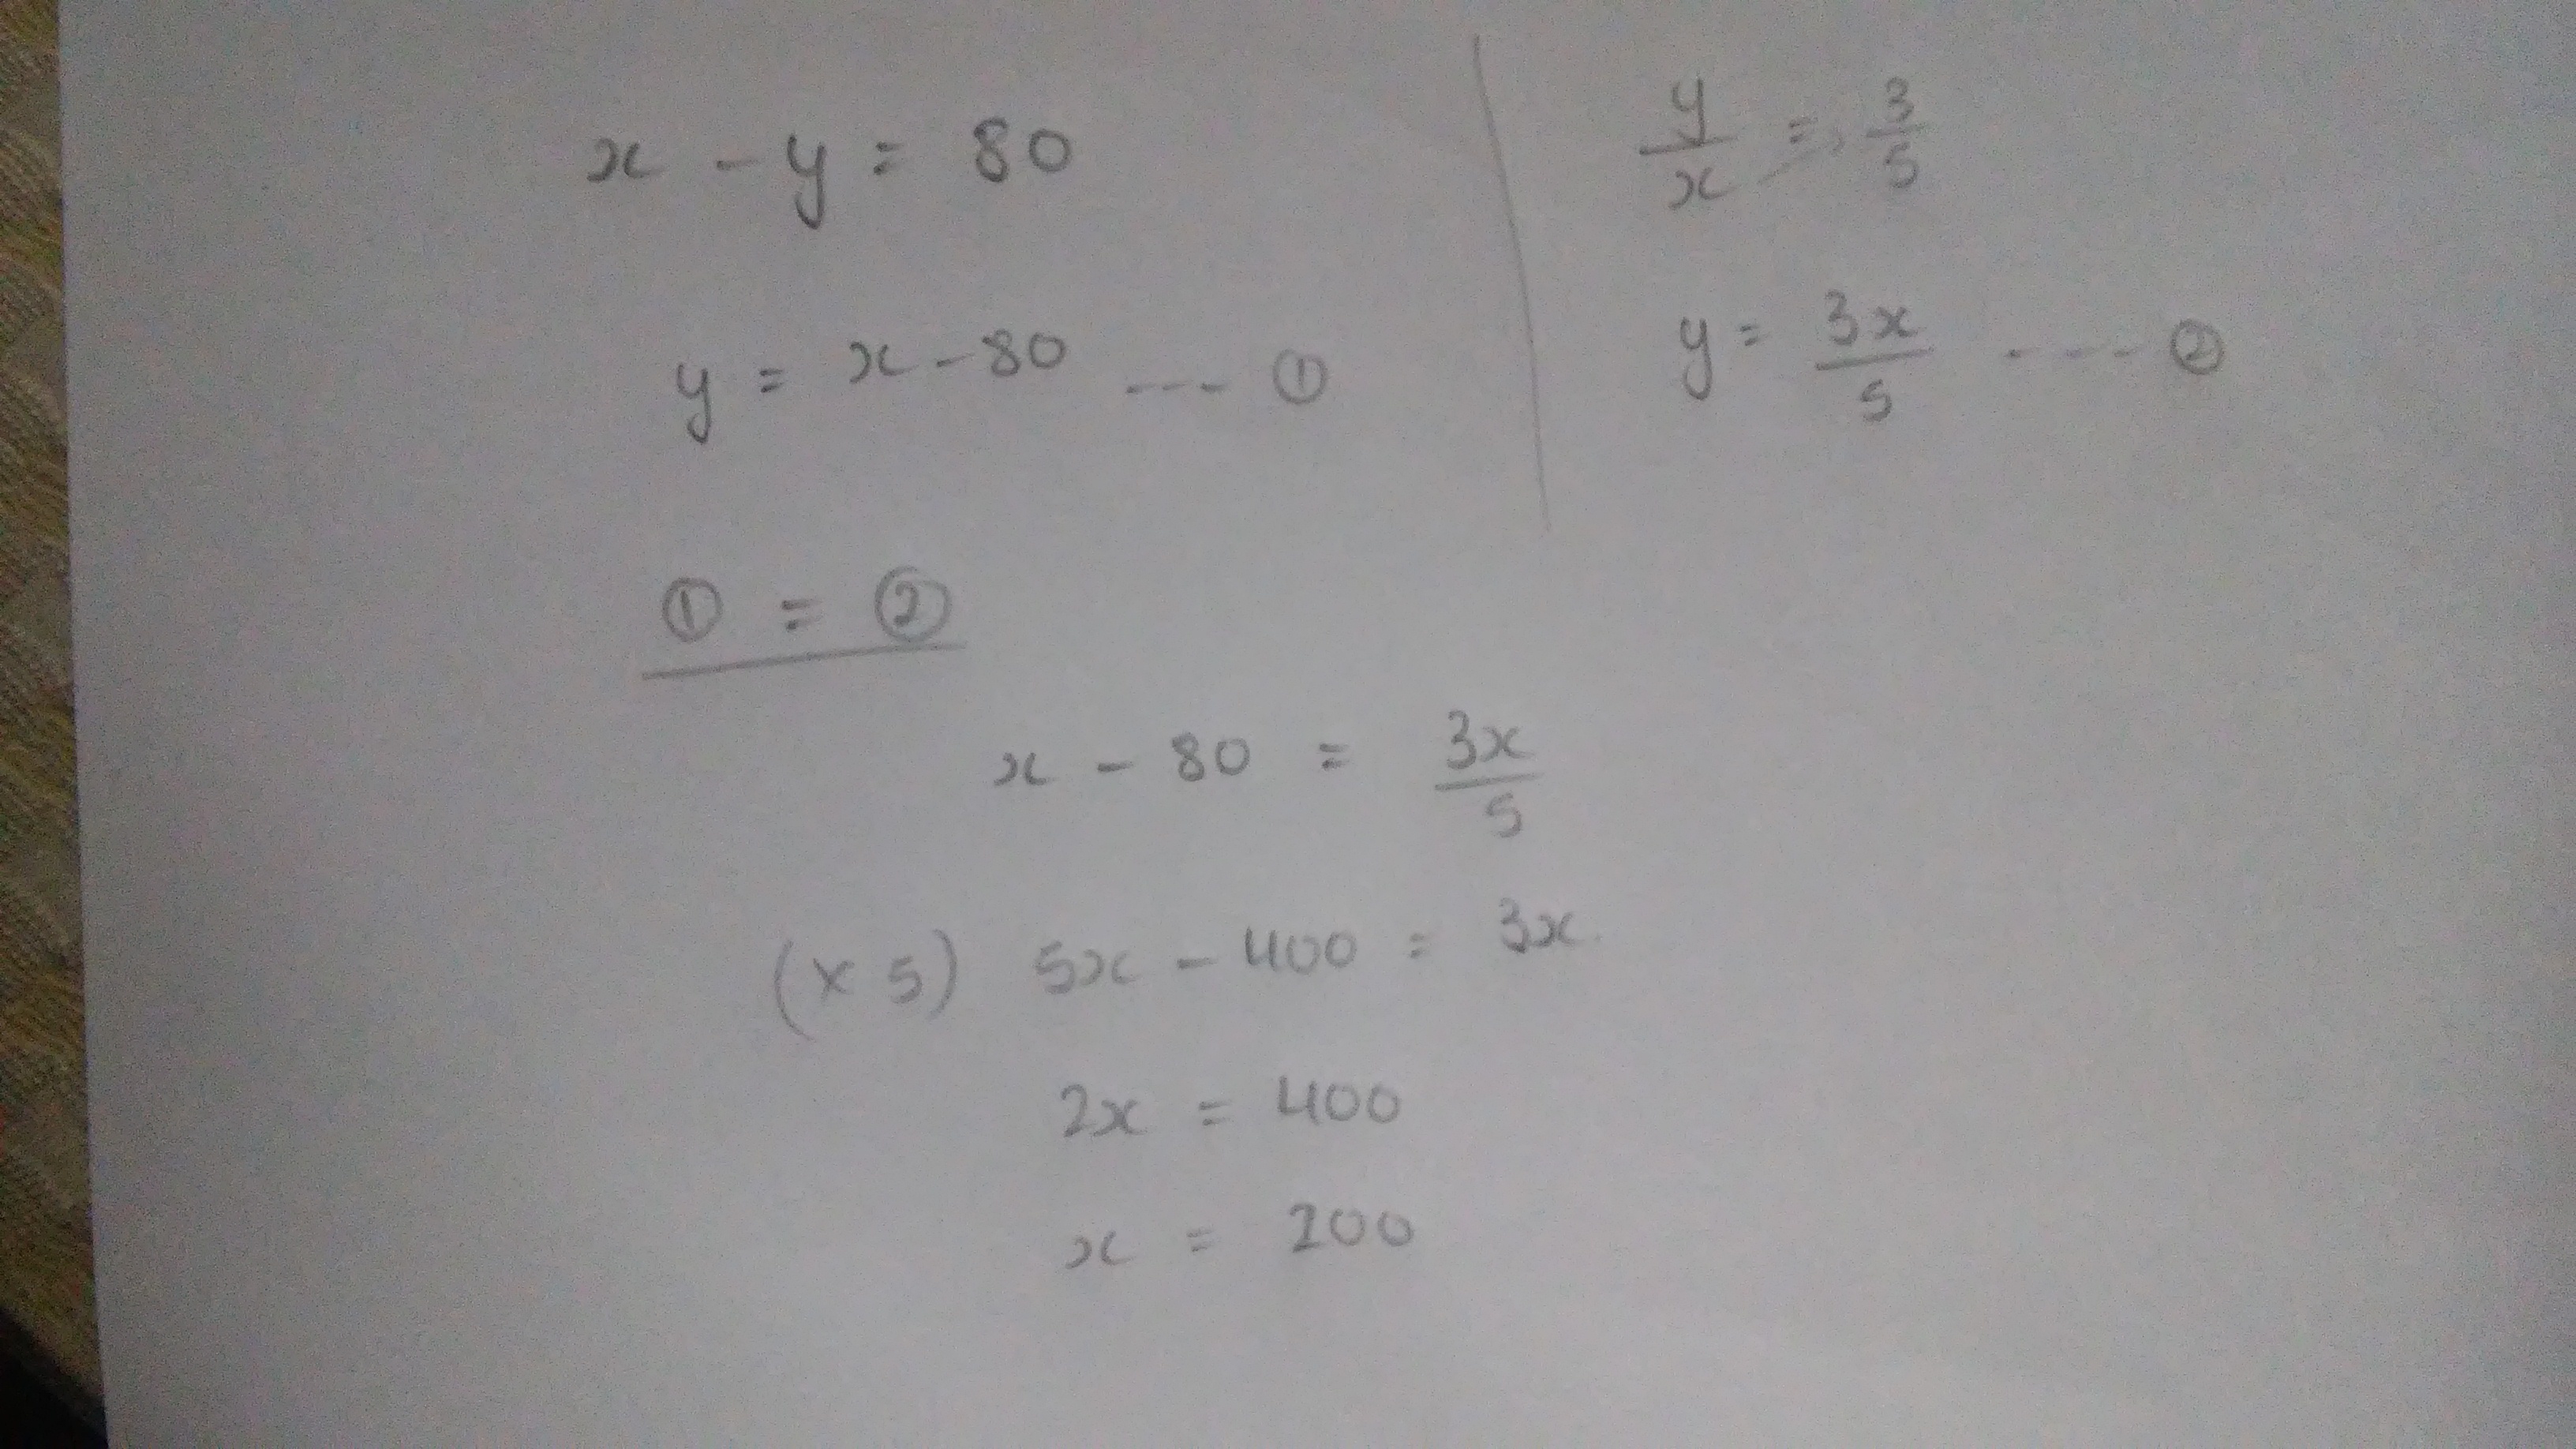 x - y = 80
y = x - 80 --- ①
y/x = 3/5
y = 3x/5 ---- ②
① = ②
x - 80 = 3x/5
(× 5) 5x - 400 = 3x
2x = 400
x = 200